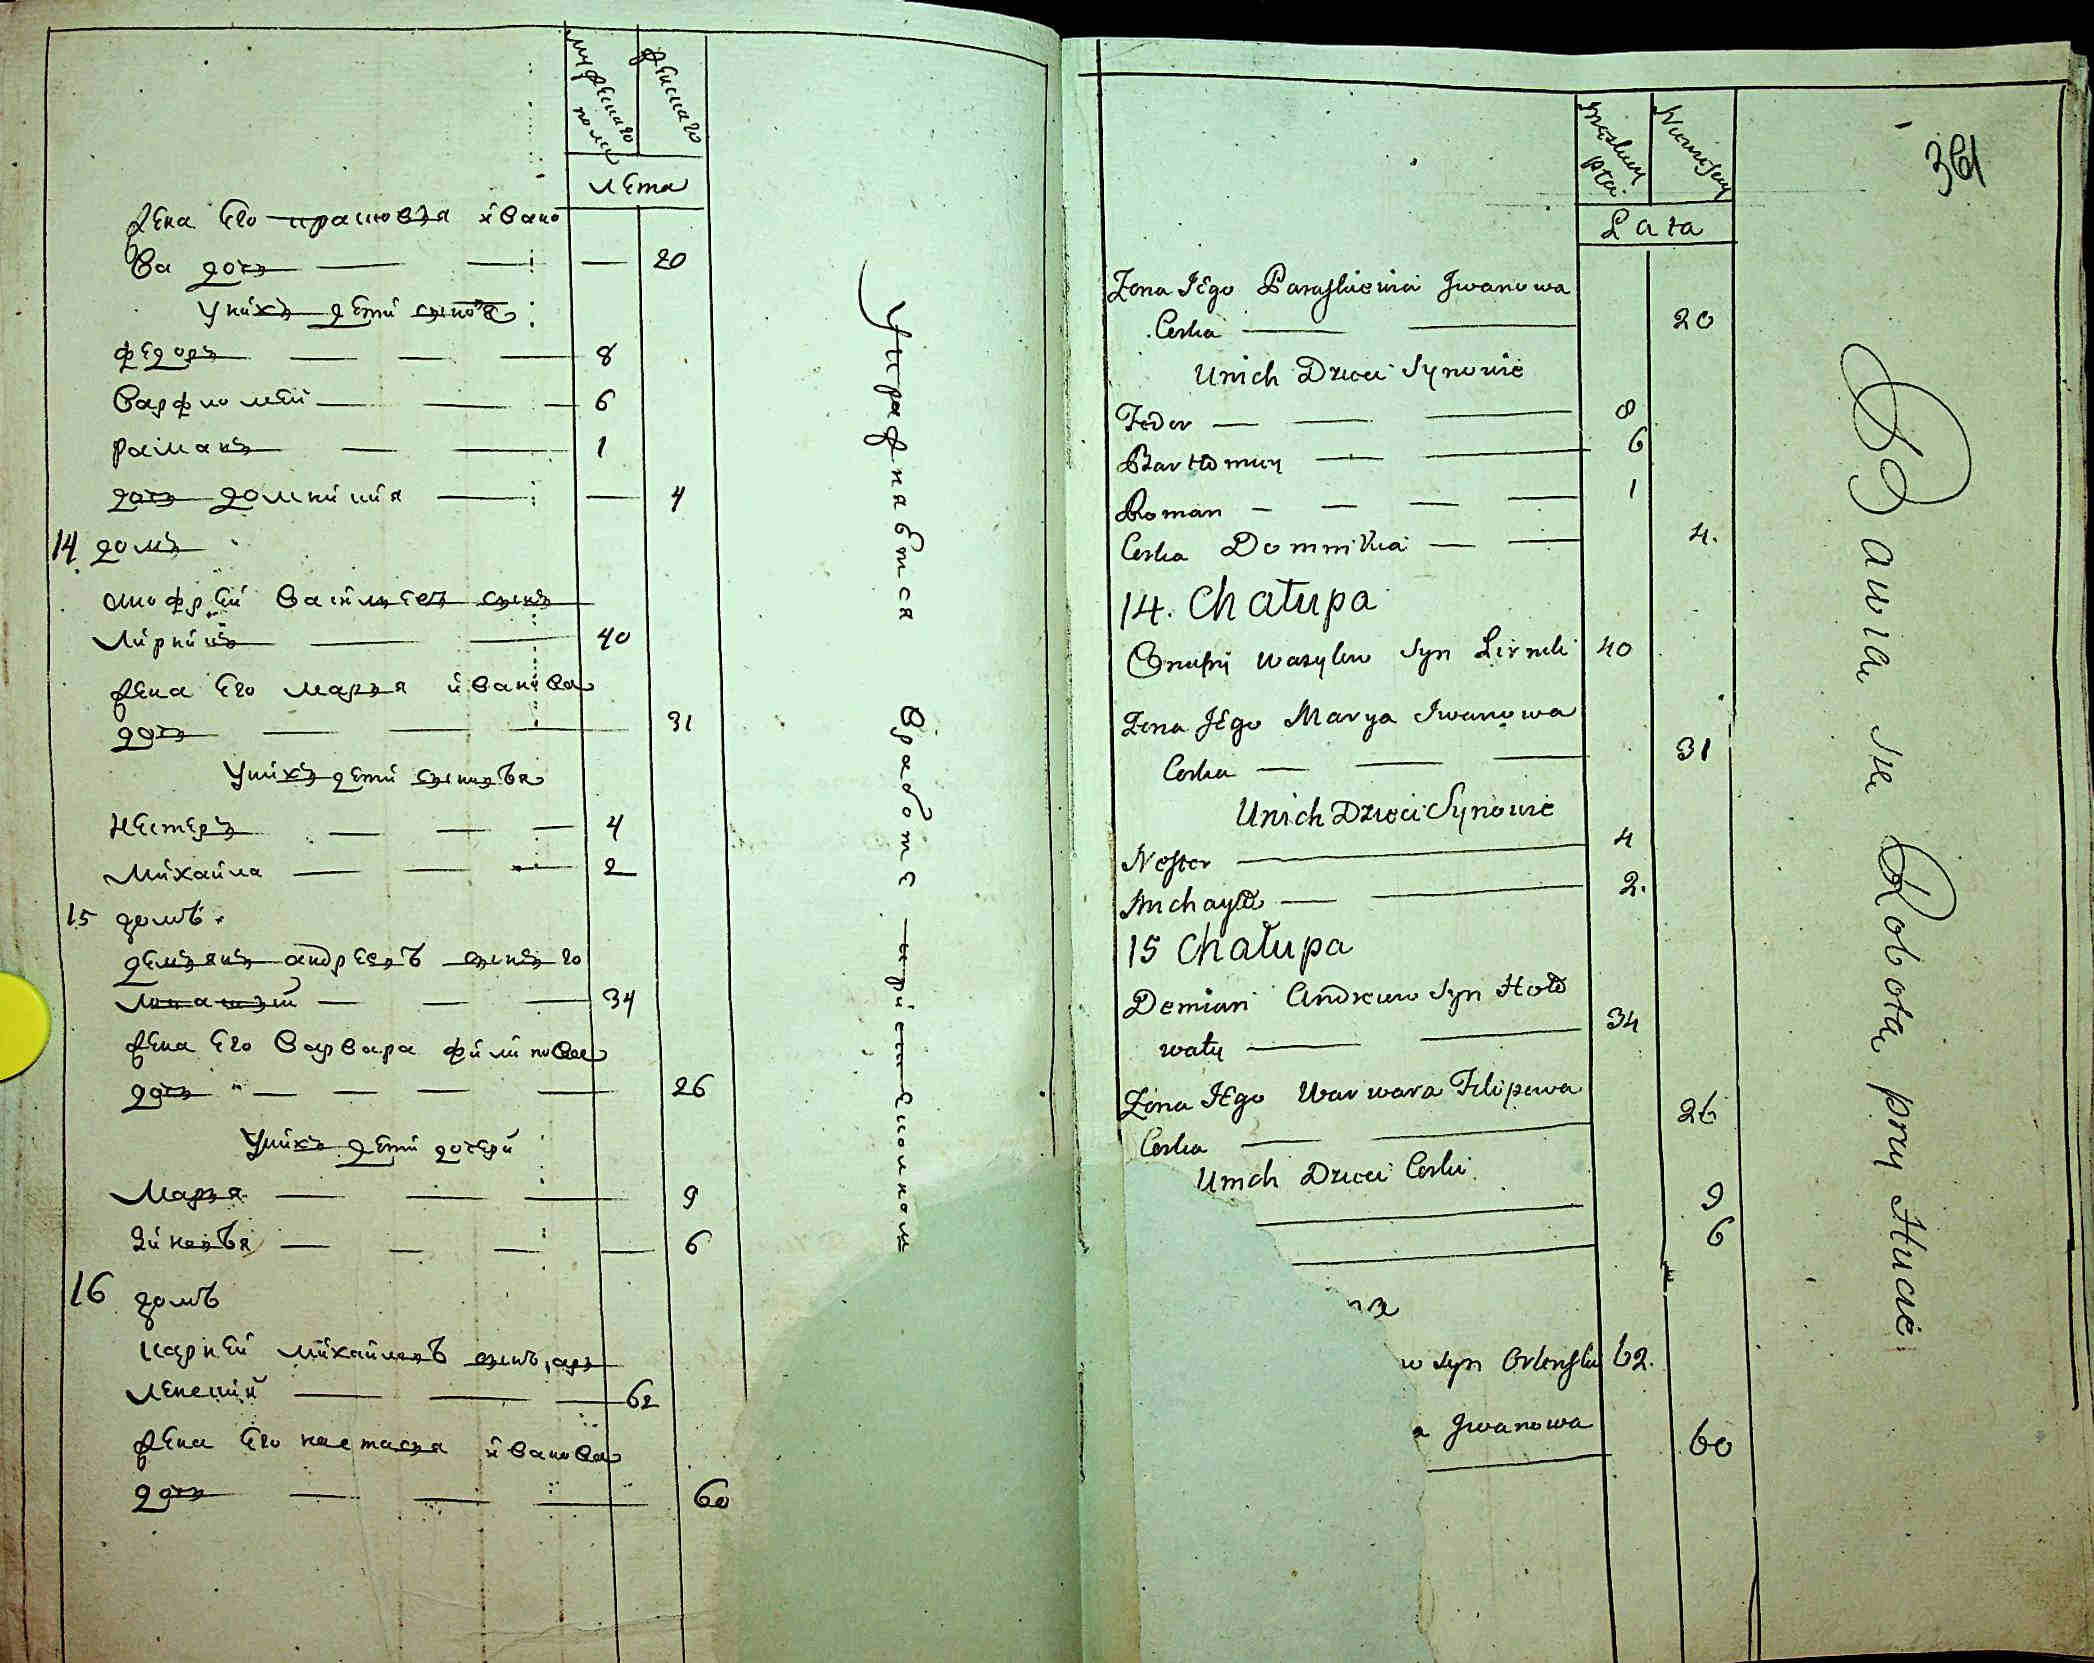 мужеска го
пола
женска го
лета
жена его прасковея ивано
ва дочь — — — 20
у них дети синове
федоръ — — — 8
варфломей — — — 6
раманъ — — 1
дочь домникия — — 4
14 домъ
онофрей василиевъ синъ
лирникъ — — 40
жена его марья иванова
дочь — — — 31
у нихъ дети синовья
нестеръ — — — 4
михайла — — — 2
15 домъ
демьянъ андреевъ синъ го
— — — 34
жена его варвара филипова
дочь — — — — 26
у нихъ дети дочери
марья — — — 9
зиновья — — — — 6
16 домъ
карней михайловъ синъ
ленский — — — 62
жена его настасья иванова
дочь — — — 60
упражняется в работе при
Męskiey
płci
Niewiesciey
Lata
361
Żona Iego Paraskiewia Iwanowa
Corka — — 20
Unich Dzieci Synowie
Fedor — — — 8
Bartłomiey — — 6
Roman — — — — 1
Corka Domnikia — — 4.
14. Chałupa
Onufry Wasylew Syn Lirnik 40
Żona Iego Marya Iwanowa
Corka — — — 31
Unich Dzieci Synowie
Nester — 4
Michayło — — 2.
15 Chałupa
Demian Andreiew Syn Hoło
waty — — 34
Żona Iego Warwara Filipowa
Corka — — 26
Unich Dzieci Corki
— 9
— 6
w Syn Orlenski 62.
a Iwanowa
— 60
Bawia sie Robota przy Hucie